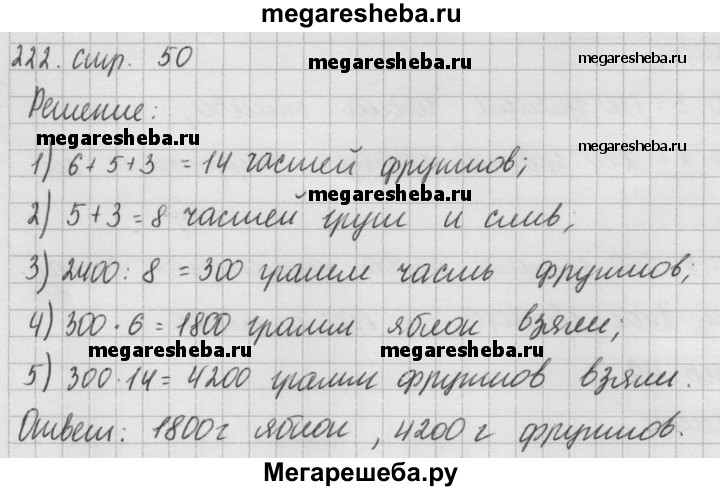 megaresheba.ru
222. стр. 50
megaresheba.ru
megaresheba.ru
Решение:
megaresheba.ru
megaresheba.ru
1) 6+5+3 = 14 частей фруктов;
megaresheba.ru
2) 5+3=8 частей груш и слив;
3) 2400:8 = 300 грамм часть фруктов;
4) 300·6=1800 грамм яблок взяли;
megaresheba.ru
megaresheba.ru
5) 300·14= 4200 грамм фруктов взяли.
Ответ: 1800г яблок, 4200 г фруктов.
Мегарешеба.ру